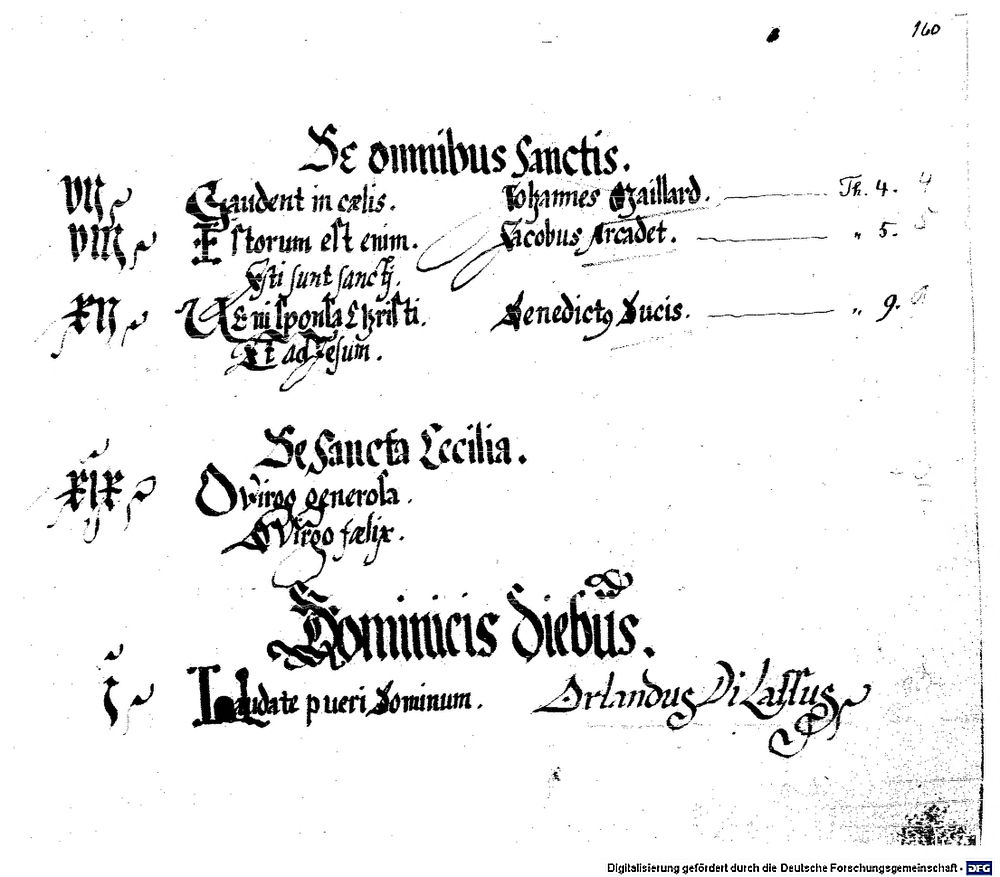 160
De omnibus Sanctis.
VII Gaudent in cælis. Johannes Maillard. Th. 4. 4
VIII Istorum est enim. Jacobus Arcadet. " 5. 5
Isti sunt sancti.
XII Veni sponsa Christi. Benedictꝯ Ducis. " 9. 9
Et ad Jesum.
De Sancta Cecilia.
XIX O virgo generosa.
O Virgo fælix.
Dominicis Diebus.
I Laudate pueri Dominum. Orlandus Di Lassus
Digitalisierung gefördert durch die Deutsche Forschungsgemeinschaft - DFG